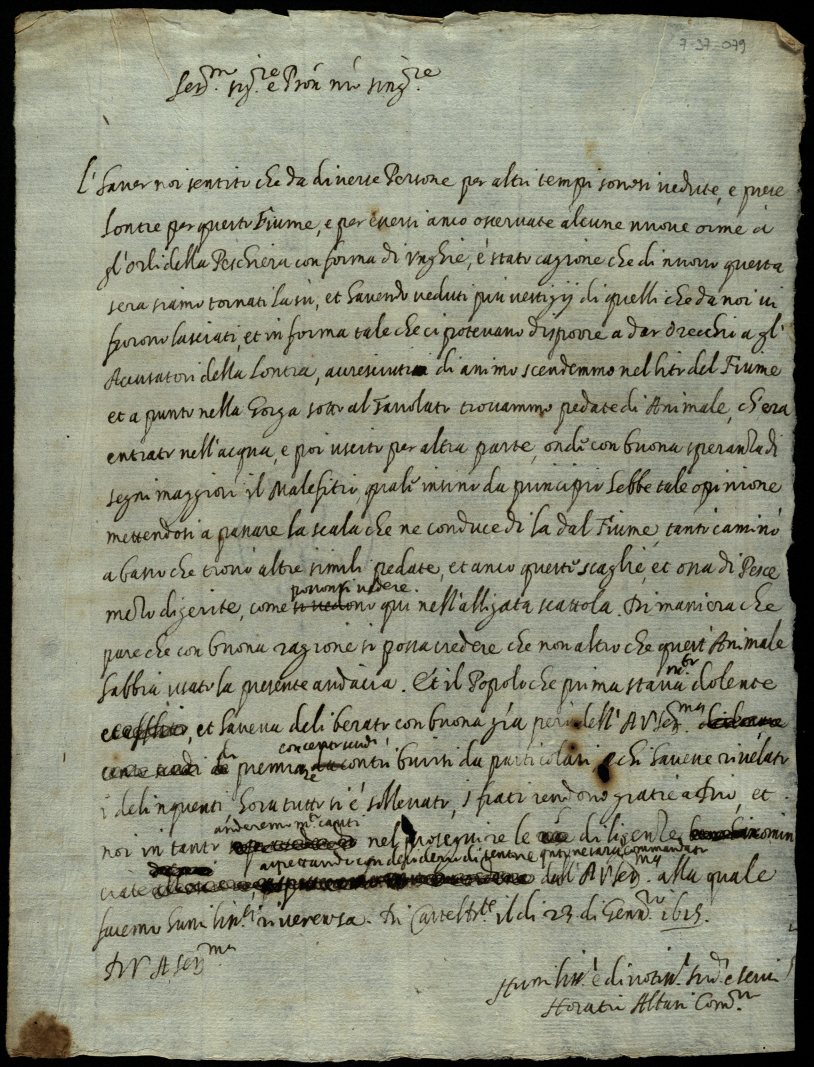 7-37-079
Ser.mo sig.re e Pron nro sing.re
L'haver noi sentito che da diverse Persone per altri tempi sonosi vedute, e prese
Lontre per questo Fiume, e per eversi anco osservate alcune nuove orme à
gl'Orli della Peschiera con forma di Unghie, è stato cagione che di nuovo questa
sera siamo tornati lasù, et havendo veduti più vestigij di quelli che da noi vi
furono lasciati, et in forma tale che ci potevano disporre a dar orecchi a gl'
Accusatori della Lontra, accresciuti di animo scendemmo nel lito del Fiume
et a punto nella Gorga sotto al Tavolato trovammo pedate di Animale, ch'era
entrato nell'acqua, e poi uscito per altra parte, onde con buona speranza di
segni maggiori il Malefitio, quale insino da principio hebbe tale opinione
mettendosi a passare la scala che ne conduce di la dal Fiume, tanto caminò
a basso che trovò altre simili pedate, et anco queste scaglie, et ossa di Pesce
possonsi vedere
mezo digerite, come si vedono qui nell'alligata scattola. Di maniera che
pare che con buona ragione si possa credere che non altro che quest'Animale
habbia usato la presente audacia. Et il Popolo che prima stava m.to dolente
et afflitto, et haveva deliberato con buona gra però dell'A.V. Ser.ma
concorrendo
di premi contribuirsi da particolari a chi havesse rivelato
i delinquenti hora tutto si è sollevato, i frati rendono gratie a Dio, et
anderemo m.to cauti
noi in tanto nel proseguire le di ligenze comin
aspettando con desiderio di sentire quanto ne sarà commandato
ciate dall'A.V. Ser.ma alla quale
facemo humiliss.e riverenza. Di Castel il di 23 di Genn.ro 1615.
Di V. A. Ser.ma
Humiliss.i e divotiss.i e servi
Horatio Alturi Com.rio